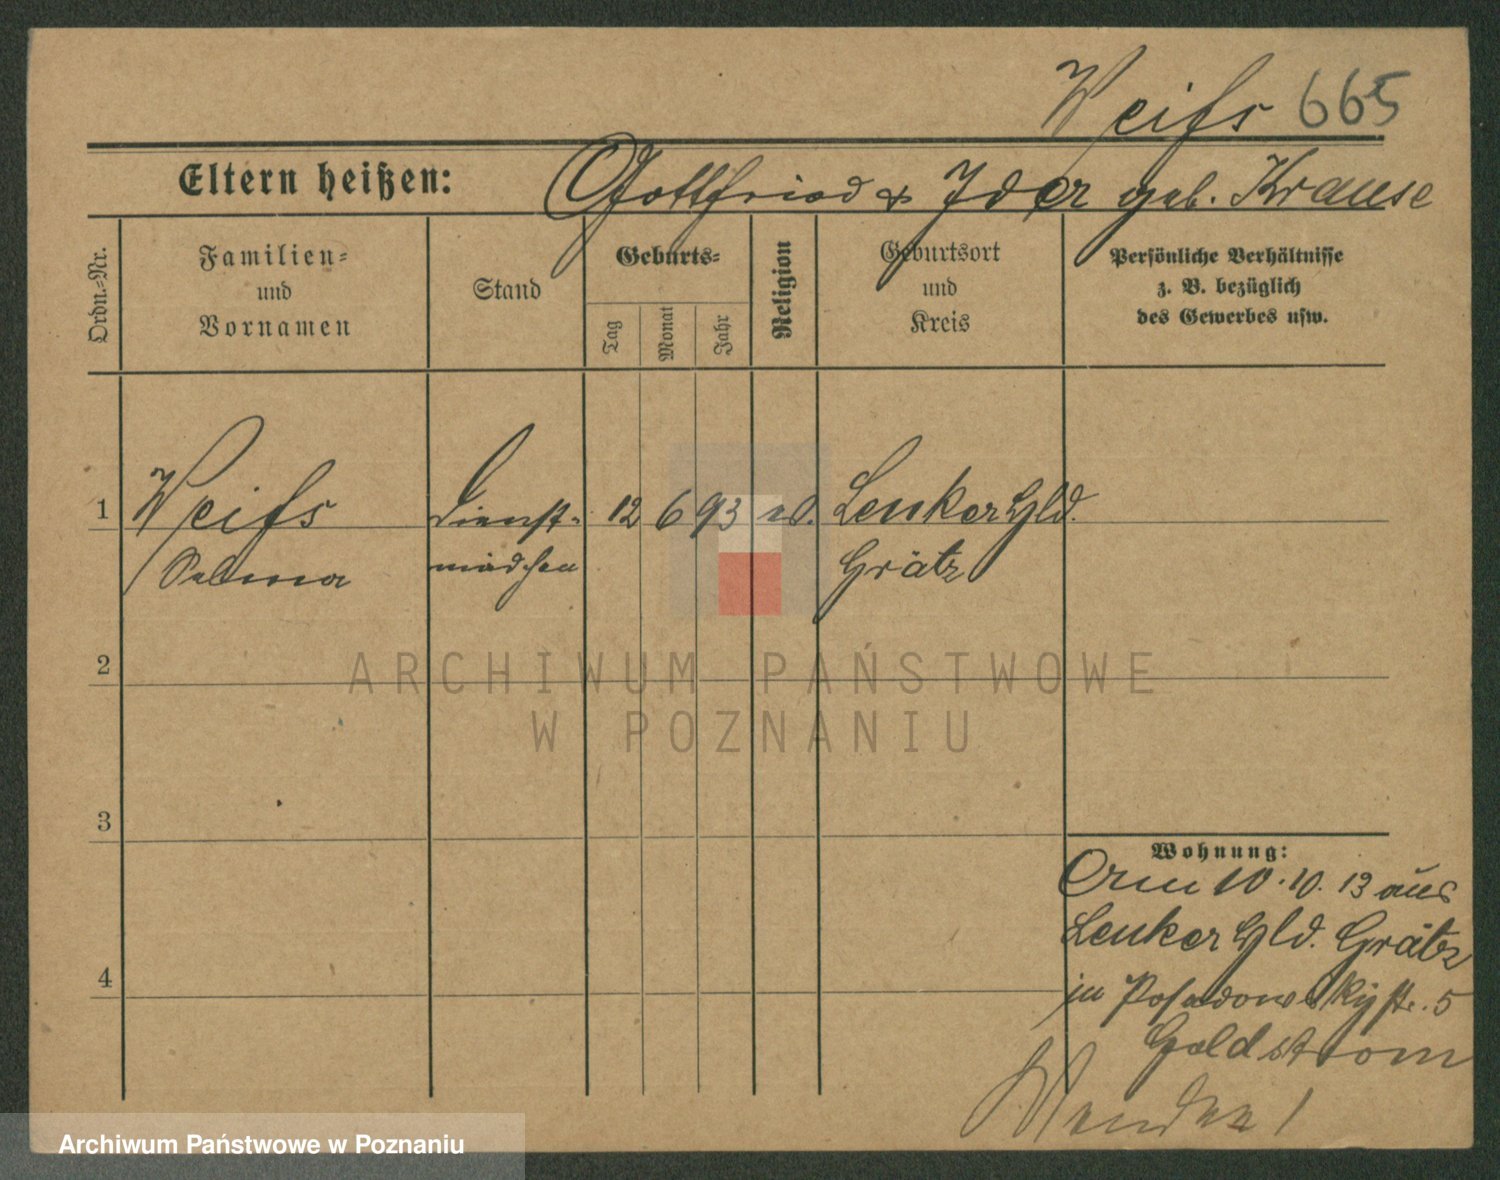 Weiſs 665
Eltern heißen: Gottfried & Ida geb. Krause
Ordn.-Nr.
Familien-
und
Vornamen
Stand
Geburts-
Tag
Monat
Jahr
Religion
Geburtsort
und
Kreis
Persönliche Verhältnisse
z. B. bezüglich
des Gewerbes usw.
1 Weiſs Dienst- 12 6 93 Lenker Hld.
Selma mädchen Grätz
2
ARCHIWUM PAŃSTWOWE
W POZNANIU
3
4
Wohnung:
10.10.13 aus
Lenker Hld. Grätz
zu Posadowskystr. 5
Goldstrom
Wenden!
Archiwum Państwowe w Poznaniu